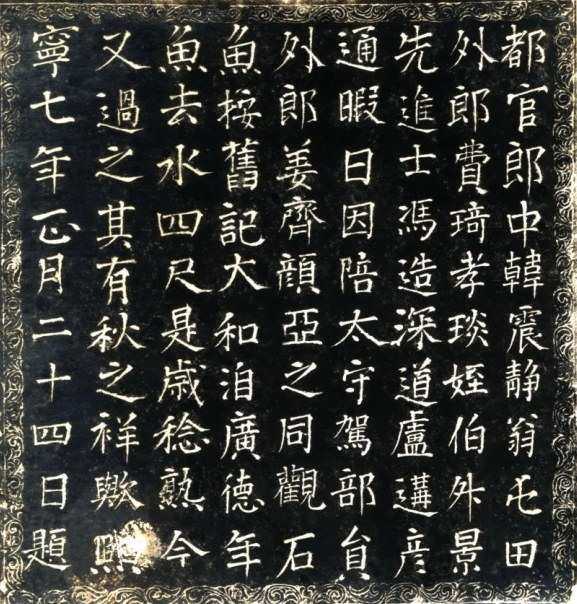 都官郎中韓震静翁屯田
外郎費琦孝琰姪伯升景
先進士馮造深道盧遘彦
通暇日因陪太守駕部貟
外郎姜齊顔亞之同觀石
魚桉舊記大和洎廣德年
魚去水四尺是歲稔熟今
又過之其有秋之祥歟熙
寧七年正月二十四日題